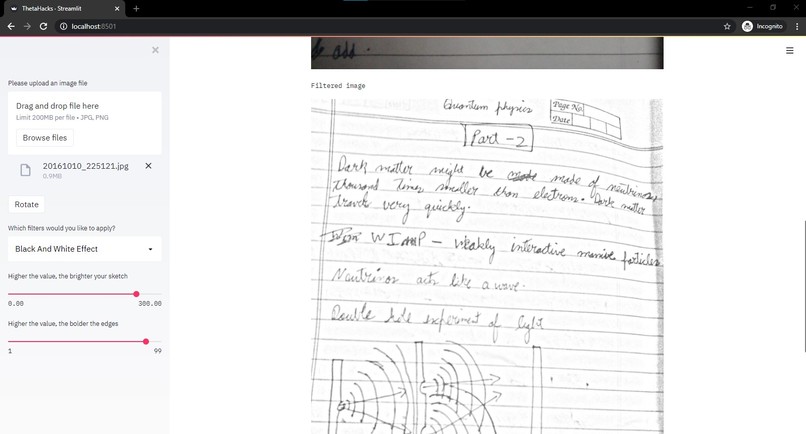 ThetaHacks · Streamlit
localhost:8501
Incognito
Please upload an image file
Drag and drop file here
Limit 200MB per file • JPG, PNG
Browse files
20160110_225121.jpg
0.9MB
Rotate
Which filters would you like to apply?
Black And White Effect
Higher the value, the brighter your sketch
0.00 300.00
Higher the value, the bolder the edges
1 99
add.
Filtered image
Quantum physics
Page No.
Date
Part - 2
Dark matter might be made of neutrinos
thousand times smaller than electrons. Dark matter
travels very quickly.
WIMP - Weakly interactive massive particles
Neutrinos acts like a wave.
Double hole experiment of light